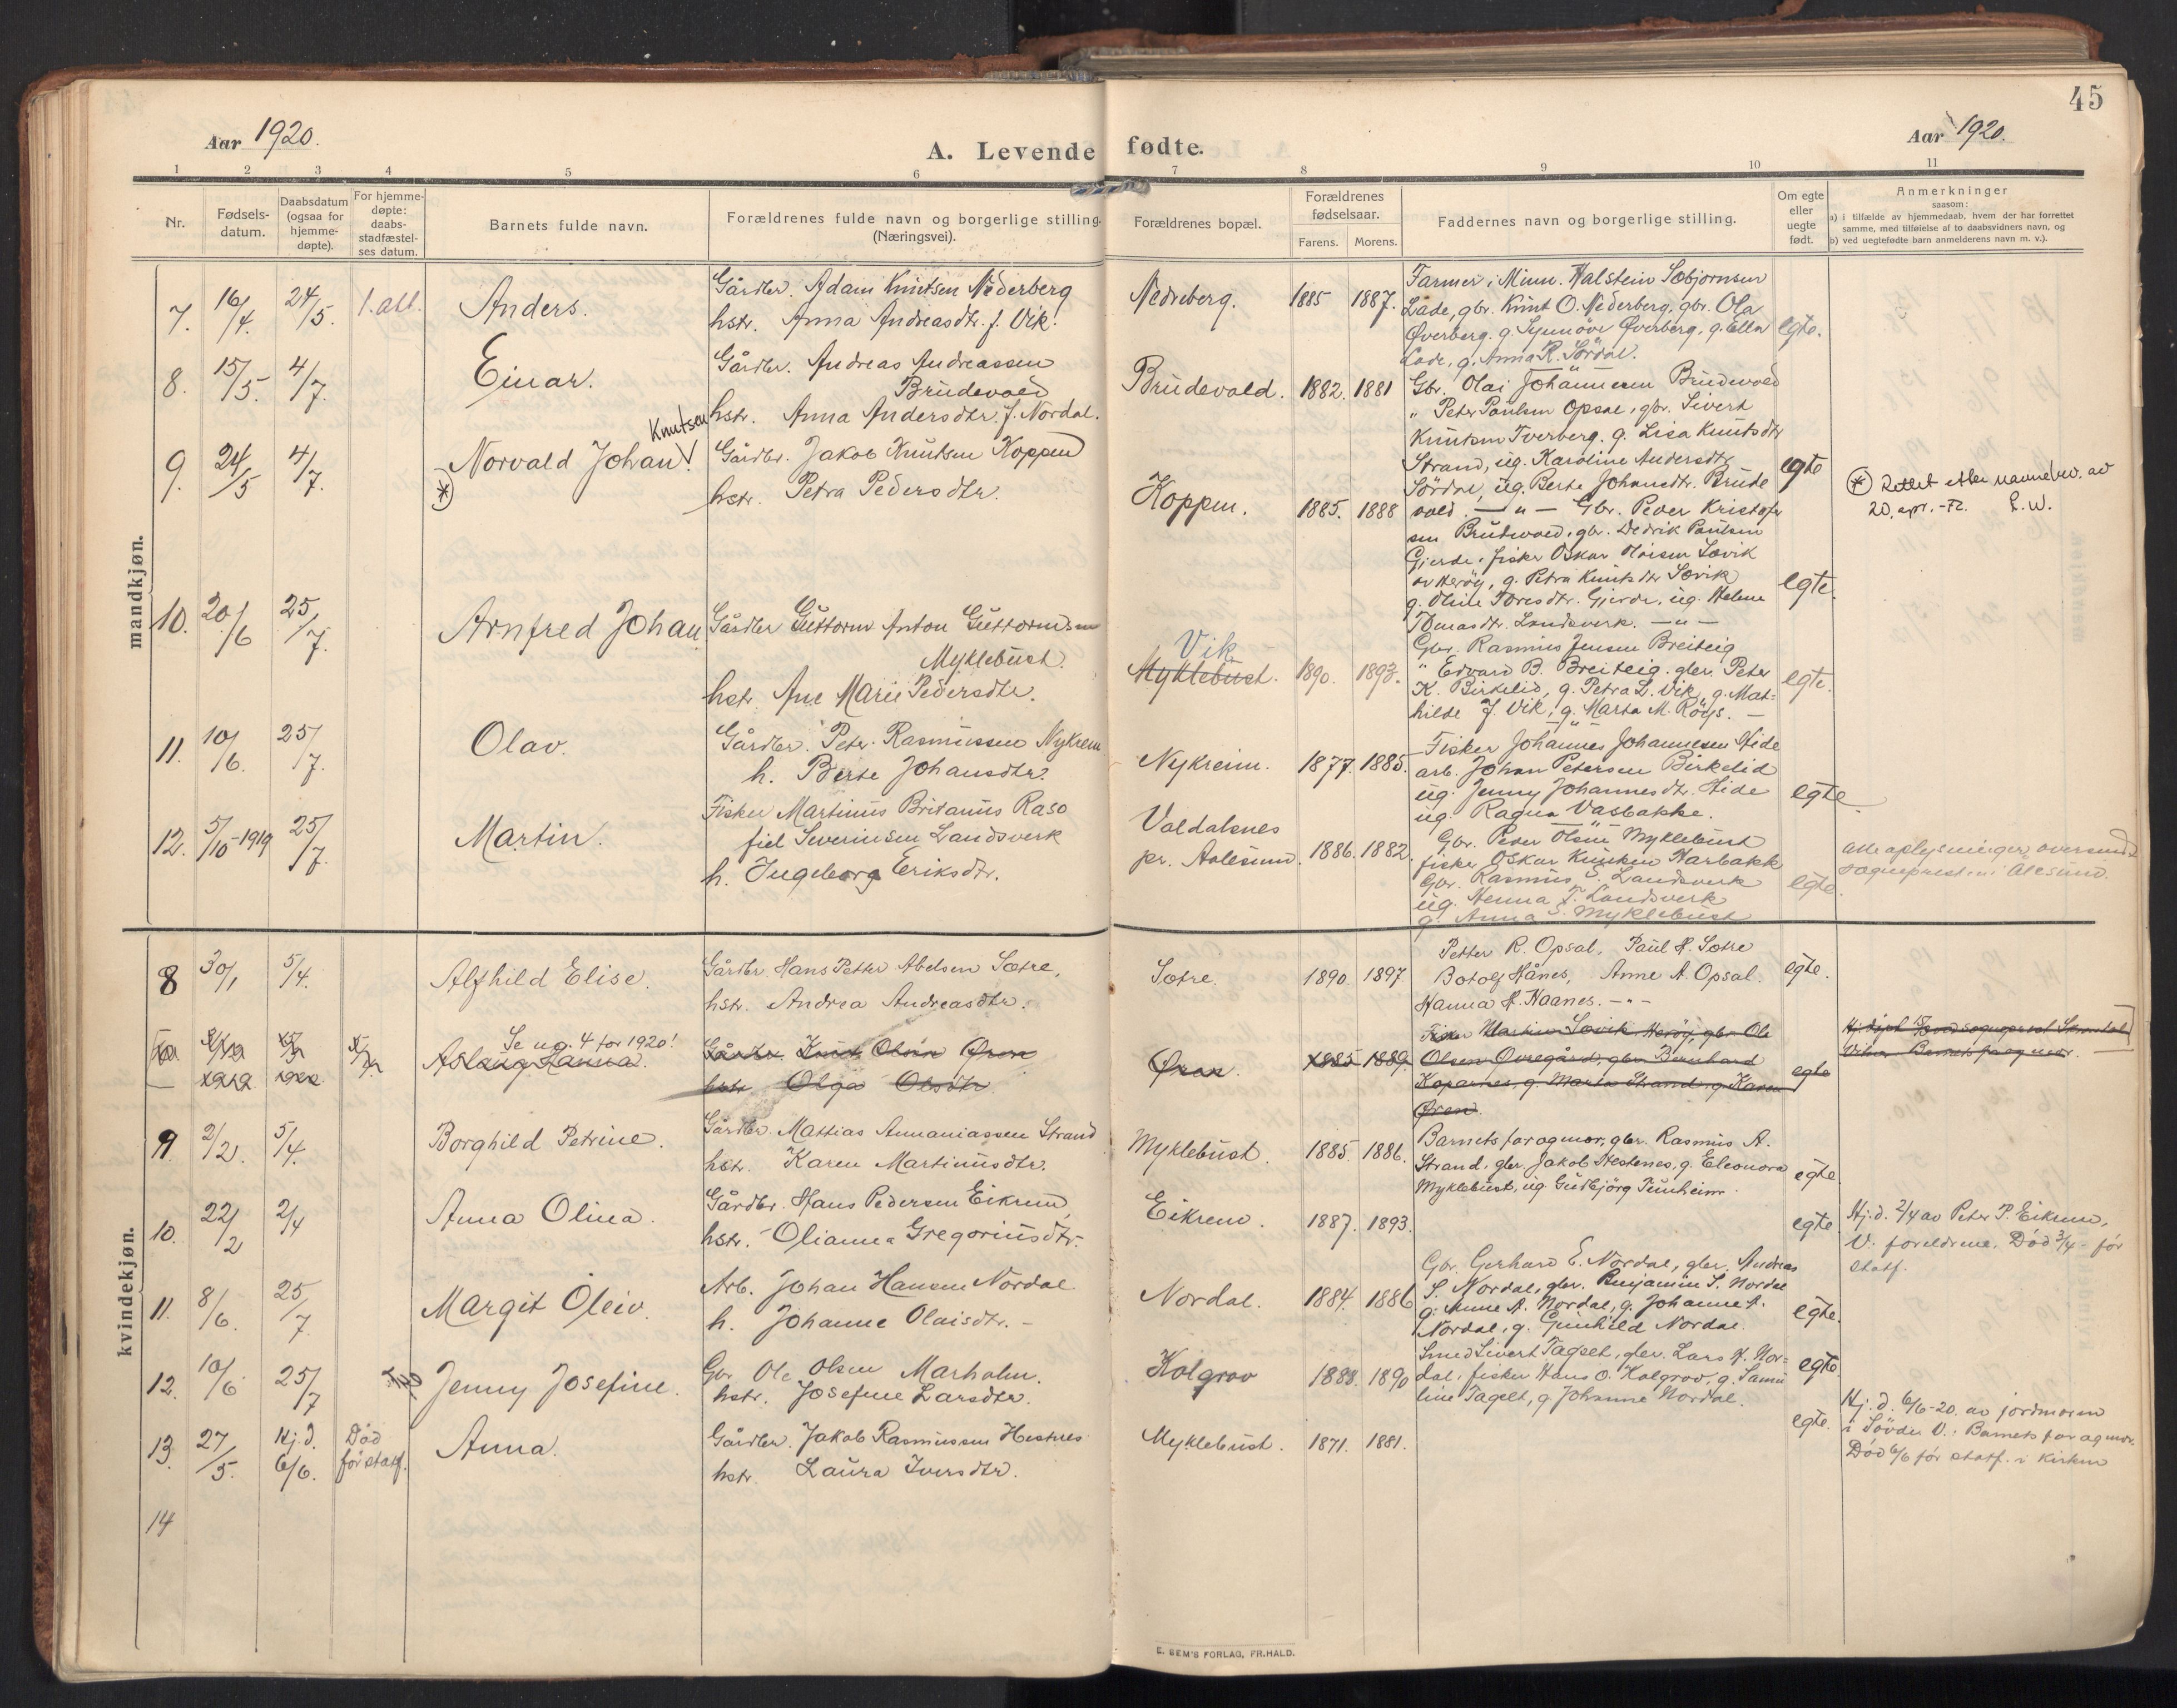 45
Aar 1920.
A. Levende fødte.
Aar 1920.
1 2 3 4 5 6 7 8 9 10 11
Nr.
Fødsels-
datum.
Daabsdatum
(ogsaa for
hjemme-
døpte).
For hjemme-
døpte:
daabs-
stadfæstel-
ses datum.
Barnets fulde navn.
Forældrenes fulde navn og borgerlige stilling.
(Næringsvei).
Forældrenes bopæl.
Forældrenes
fødselsaar.
Farens. Morens.
Faddernes navn og borgerlige stilling.
Om egte
eller
uegte
født.
Anmerkninger
saasom:
a) i tilfælde av hjemmedaab, hvem der har forrettet
samme, med tilføielse af to daabsvidners navn, og
b) ved uegtefødte barn anmelderens navn m. v.).
mandkjøn.
7. 16/4. 24/5. Anders.
Gårdbr. Adam Knutsen Nederberg
hstr. Anna Andreasdtr. f. Vik.
Nedreberg. 1885 1887.
Farmer i Minn. Halstein Sæbjørnsen
Lade, gbr. Knut O. Nederberg, gbr. Ola
Øverberg. g. Synnöve Øverberg, g. Ella
Lade, g. Anna R. Sördal.
egte.
8. 15/5. 4/7. Einar.
Gårdbr. Andreas Andreassen
Brudevold
hstr. Anna Andersdtr. f. Nordal.
Brudevold. 1882. 1881
Gbr. Olai Johannesen Brudevold
" Peter Paulsen Opsal, gbr. Sivert
Knutsen Tverberg. g. Lisa Knutsdtr
Strand, ug. Karoline Andersdtr
Sördal, ug. Berte Johansdtr. Brude
vold. — " —
egte
9. 24/5 4/7. Norvald Johan! Knutsen
(*)
Gårdbr. Jakob Knutsen Koppen
hstr. Petra Pedersdtr.
Koppen. 1885. 1888
Gbr. Peder Kristofer
sen Brudevold, gbr. Dedrik Paulsen
Gjerde, fisker Oskar Olaisen Sævik
av Herøy, g. Petra Knutsdtr Sævik
g. Oline Toresdtr. Gjerde, ug. Helene
Tomasdtr. Landsverk. — " —
egte.
(*) Rettet etter navnebev. av
20. apr. -72. L.W.
10. 20/6 25/7. Arnfred Johan
Gårdbr Guttorm Anton Guttormsen
Myklebust.
hstr. Ane Marie Pedersdtr.
Vik
Myklebust. 1890. 1893.
Gbr. Rasmus Jensen Breiteig
" Edvard B. Breiteig. gbr. Peter
K. Birkelid, g. Petra L. Vik, g. Mat=
hilde J. Vik, g. Marta M. Röys. —
egte.
11. 10/6. 25/7. Olav.
Gårdbr. Peter Rasmussen Nykrem
h. Berte Johansdtr.
Nykreim. 1877. 1885.
Fisker Johannes Johannesen Hide
arb. Johan Petersen Birkelid
ug. Jenny Johannesdtr. Hide
ug. Ragna Vasbakke.
egte
12. 5/10-1919 25/7. Martin.
Fisker Martinus Britanus Raso
fiel Severinsen Landsverk
h. Ingeborg Eriksdtr.
Valdalsnes
pr. Aalesund. 1886. 1882.
Gbr. Peder Olsen Myklebust
fisker Oskar Knutsen Karbakk
Gbr. Rasmus S. Landsverk
ug. Henna T. Landsverk
g. Anna S. Myklebust
egte.
alle oplysninger oversendt
sognepresten i Ålesund.
kvindekjøn.
8 30/1 5/4. Alfhild Elise.
Gårdbr. Hans Petter Abelsen Sætre,
hstr. Andrea Andreasdtr.
Sætre. 1890. 1897
Petter R. Opsal, Paul H. Sætre
Botolf Hånes, Anne A. Opsal.
Hanna H. Haanes. — " —
egte.
Se ug. 4 for 1920!
Aslaug Hanna.
Gårdbr Knut Olsen Øren
hstr Olga Olsdtr
Øren. 1885 1889.
Fisker Martin Sævik Herøy, gbr Ole
Olsen Øvregård, gbr Bernhard
Koparnes, g. Marta Strand, g Karen
Øren.
egte
9 2/2. 5/4. Borghild Petrine.
Gårdbr. Mattias Ananiassen Strand
hstr. Karen Martinusdtr.
Myklebust. 1885. 1886.
Barnets far og mor, gbr. Rasmus A.
Strand, gbr. Jakob Hestenes, g. Eleonora
Myklebust, ug. Gudbjörg Tunheim.
egte
10. 22/2 2/4 Anna Olina.
Gårdbr. Hans Pedersen Eikrem
hstr. Olianna Gregoriusdtr.
Eikrem. 1887. 1893.
egte
Hj.d. 2/4 av Peter P. Eikrem,
V. foreldrene. Død 3/4 - før
statf.
11. 8/6. 25/7. Margit Oleiv.
Arb. Johan Hansen Nordal.
h. Johanne Olaisdtr. —
Nordal. 1884. 1886
Gbr. Gerhard E. Nordal, gbr. Andreas
S. Nordal, gbr. Benjamin S. Nordal
g. Anne A. Nordal, g. Johanne A.
Nordal, g. Gunhild Nordal.
egte.
12. 10/6 25/7 Jenny Josefine.
Gbr. Ole Olsen Marholm.
hstr. Josefine Larsdtr.
Kolgrov 1888. 1890
Smed Sivert Tagset, gbr. Lars H. Nor=
dal, fisker Hans O. Kolgrov, g. Samu
line Tagset, g Johanne Nordal.
egte.
13. 27/5. Hj.d. 6/6. Död før statf. Anna.
Gårdbr. Jakob Rasmussen Hestnes
hstr. Laura Iversdtr.
Myklebust. 1871. 1881.
egte.
Hj.d. 6/6-20. av jordmoren
i Sövde. V.: Barnets far og mor.
Død 6/6 før statf. i kirken
14
E. SEM'S FORLAG, FR.HALD.